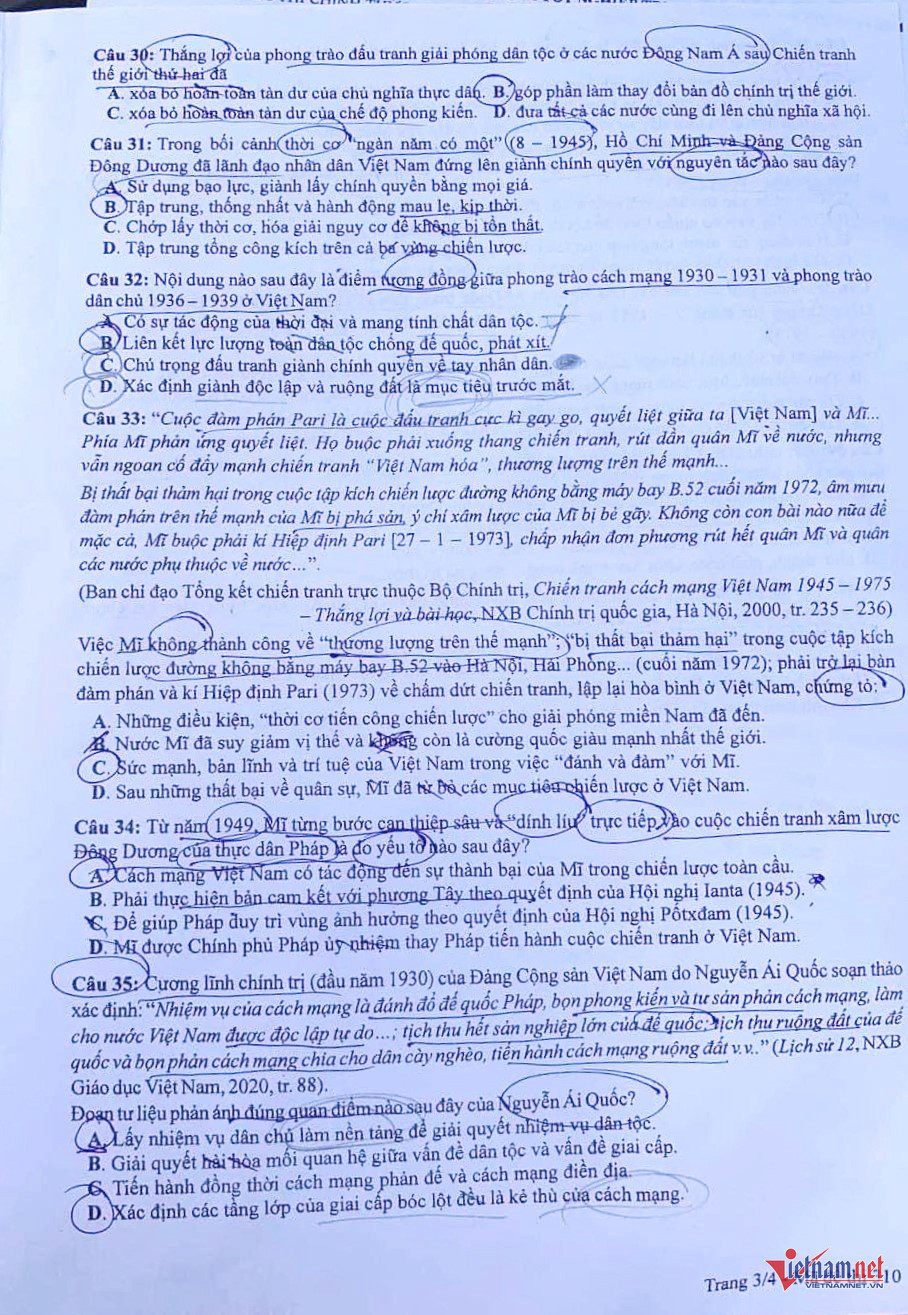 Câu 30: Thắng lợi của phong trào đấu tranh giải phóng dân tộc ở các nước Đông Nam Á sau Chiến tranh
thế giới thứ hai đã
A. xóa bỏ hoàn toàn tàn dư của chủ nghĩa thực dân. B. góp phần làm thay đổi bản đồ chính trị thế giới.
C. xóa bỏ hoàn toàn tàn dư của chế độ phong kiến. D. đưa tất cả các nước cùng đi lên chủ nghĩa xã hội.
Câu 31: Trong bối cảnh thời cơ "ngàn năm có một" (8 – 1945), Hồ Chí Minh và Đảng Cộng sản
Đông Dương đã lãnh đạo nhân dân Việt Nam đứng lên giành chính quyền với nguyên tắc nào sau đây?
A. Sử dụng bạo lực, giành lấy chính quyền bằng mọi giá.
B. Tập trung, thống nhất và hành động mau lẹ, kịp thời.
C. Chớp lấy thời cơ, hóa giải nguy cơ để không bị tổn thất.
D. Tập trung tổng công kích trên cả ba vùng chiến lược.
Câu 32: Nội dung nào sau đây là điểm tương đồng giữa phong trào cách mạng 1930 – 1931 và phong trào
dân chủ 1936 – 1939 ở Việt Nam?
A. Có sự tác động của thời đại và mang tính chất dân tộc.
B. Liên kết lực lượng toàn dân tộc chống đế quốc, phát xít.
C. Chú trọng đấu tranh giành chính quyền về tay nhân dân.
D. Xác định giành độc lập và ruộng đất là mục tiêu trước mắt.
Câu 33: "Cuộc đàm phán Pari là cuộc đấu tranh cực kì gay go, quyết liệt giữa ta [Việt Nam] và Mĩ...
Phía Mĩ phản ứng quyết liệt. Họ buộc phải xuống thang chiến tranh, rút dần quân Mĩ về nước, nhưng
vẫn ngoan cố đẩy mạnh chiến tranh "Việt Nam hóa", thương lượng trên thế mạnh...
Bị thất bại thảm hại trong cuộc tập kích chiến lược đường không bằng máy bay B.52 cuối năm 1972, âm mưu
đàm phán trên thế mạnh của Mĩ bị phá sản, ý chí xâm lược của Mĩ bị bẻ gãy. Không còn con bài nào nữa để
mặc cả, Mĩ buộc phải kí Hiệp định Pari [27 – 1 – 1973], chấp nhận đơn phương rút hết quân Mĩ và quân
các nước phụ thuộc về nước...".
(Ban chỉ đạo Tổng kết chiến tranh trực thuộc Bộ Chính trị, Chiến tranh cách mạng Việt Nam 1945 – 1975
– Thắng lợi và bài học, NXB Chính trị quốc gia, Hà Nội, 2000, tr. 235 – 236)
Việc Mĩ không thành công về "thương lượng trên thế mạnh"; "bị thất bại thảm hại" trong cuộc tập kích
chiến lược đường không bằng máy bay B.52 vào Hà Nội, Hải Phòng... (cuối năm 1972); phải trở lại bàn
đàm phán và kí Hiệp định Pari (1973) về chấm dứt chiến tranh, lập lại hòa bình ở Việt Nam, chứng tỏ:
A. Những điều kiện, "thời cơ tiến công chiến lược" cho giải phóng miền Nam đã đến.
B. Nước Mĩ đã suy giảm vị thế và không còn là cường quốc giàu mạnh nhất thế giới.
C. Sức mạnh, bản lĩnh và trí tuệ của Việt Nam trong việc "đánh và đàm" với Mĩ.
D. Sau những thất bại về quân sự, Mĩ đã từ bỏ các mục tiêu chiến lược ở Việt Nam.
Câu 34: Từ năm 1949, Mĩ từng bước can thiệp sâu và "dính líu" trực tiếp vào cuộc chiến tranh xâm lược
Đông Dương của thực dân Pháp là do yếu tố nào sau đây?
A. Cách mạng Việt Nam có tác động đến sự thành bại của Mĩ trong chiến lược toàn cầu.
B. Phải thực hiện bản cam kết với phương Tây theo quyết định của Hội nghị Ianta (1945).
C. Để giúp Pháp duy trì vùng ảnh hưởng theo quyết định của Hội nghị Pốtxđam (1945).
D. Mĩ được Chính phủ Pháp ủy nhiệm thay Pháp tiến hành cuộc chiến tranh ở Việt Nam.
Câu 35: Cương lĩnh chính trị (đầu năm 1930) của Đảng Cộng sản Việt Nam do Nguyễn Ái Quốc soạn thảo
xác định: "Nhiệm vụ của cách mạng là đánh đổ đế quốc Pháp, bọn phong kiến và tư sản phản cách mạng, làm
cho nước Việt Nam được độc lập tự do...; tịch thu hết sản nghiệp lớn của đế quốc; tịch thu ruộng đất của đế
quốc và bọn phản cách mạng chia cho dân cày nghèo, tiến hành cách mạng ruộng đất v.v.." (Lịch sử 12, NXB
Giáo dục Việt Nam, 2020, tr. 88).
Đoạn tư liệu phản ánh đúng quan điểm nào sau đây của Nguyễn Ái Quốc?
A. Lấy nhiệm vụ dân chủ làm nền tảng để giải quyết nhiệm vụ dân tộc.
B. Giải quyết hài hòa mối quan hệ giữa vấn đề dân tộc và vấn đề giai cấp.
C. Tiến hành đồng thời cách mạng phản đế và cách mạng điền địa.
D. Xác định các tầng lớp của giai cấp bóc lột đều là kẻ thù của cách mạng.
Trang 3/4
10
Vietnamnet
VIETNAMNET.VN